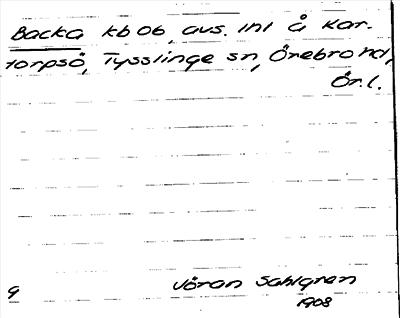 Backa kb ob, avs. inl å Kar-
torpså, Tysslinge sn, Örebro hd,
Ör. l.
9 Jöran Sahlgren
1908